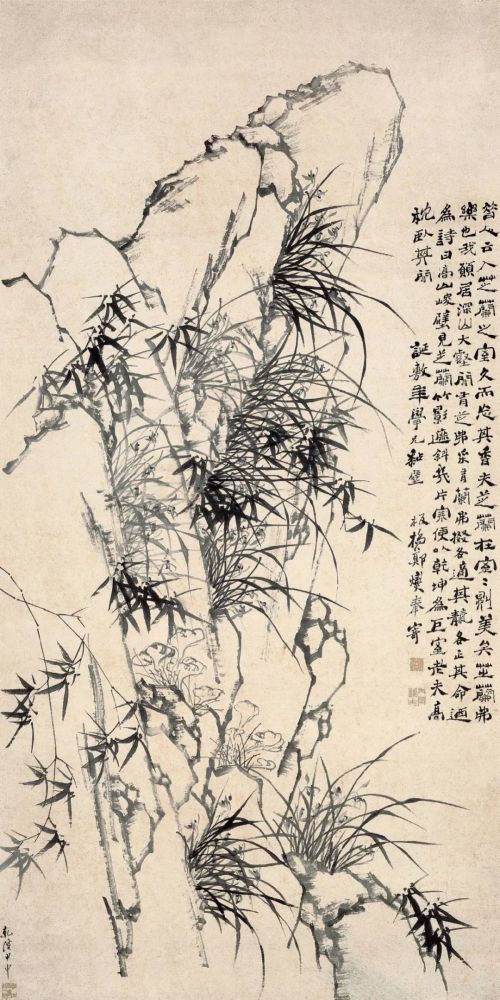 昔人云入芝蘭之室久而忘其香夫芝蘭在室〻則美矣芝蘭弗
樂也我願居深山大壑間有芝弗采有蘭弗掇各適其各正其命迺
為詩曰高山峻壁見芝蘭竹影遮斜幾片寒便以乾坤為巨室老夫高
枕臥其間
誕敷年學兄粲
板橋鄭燮奉寄
乾隆甲申